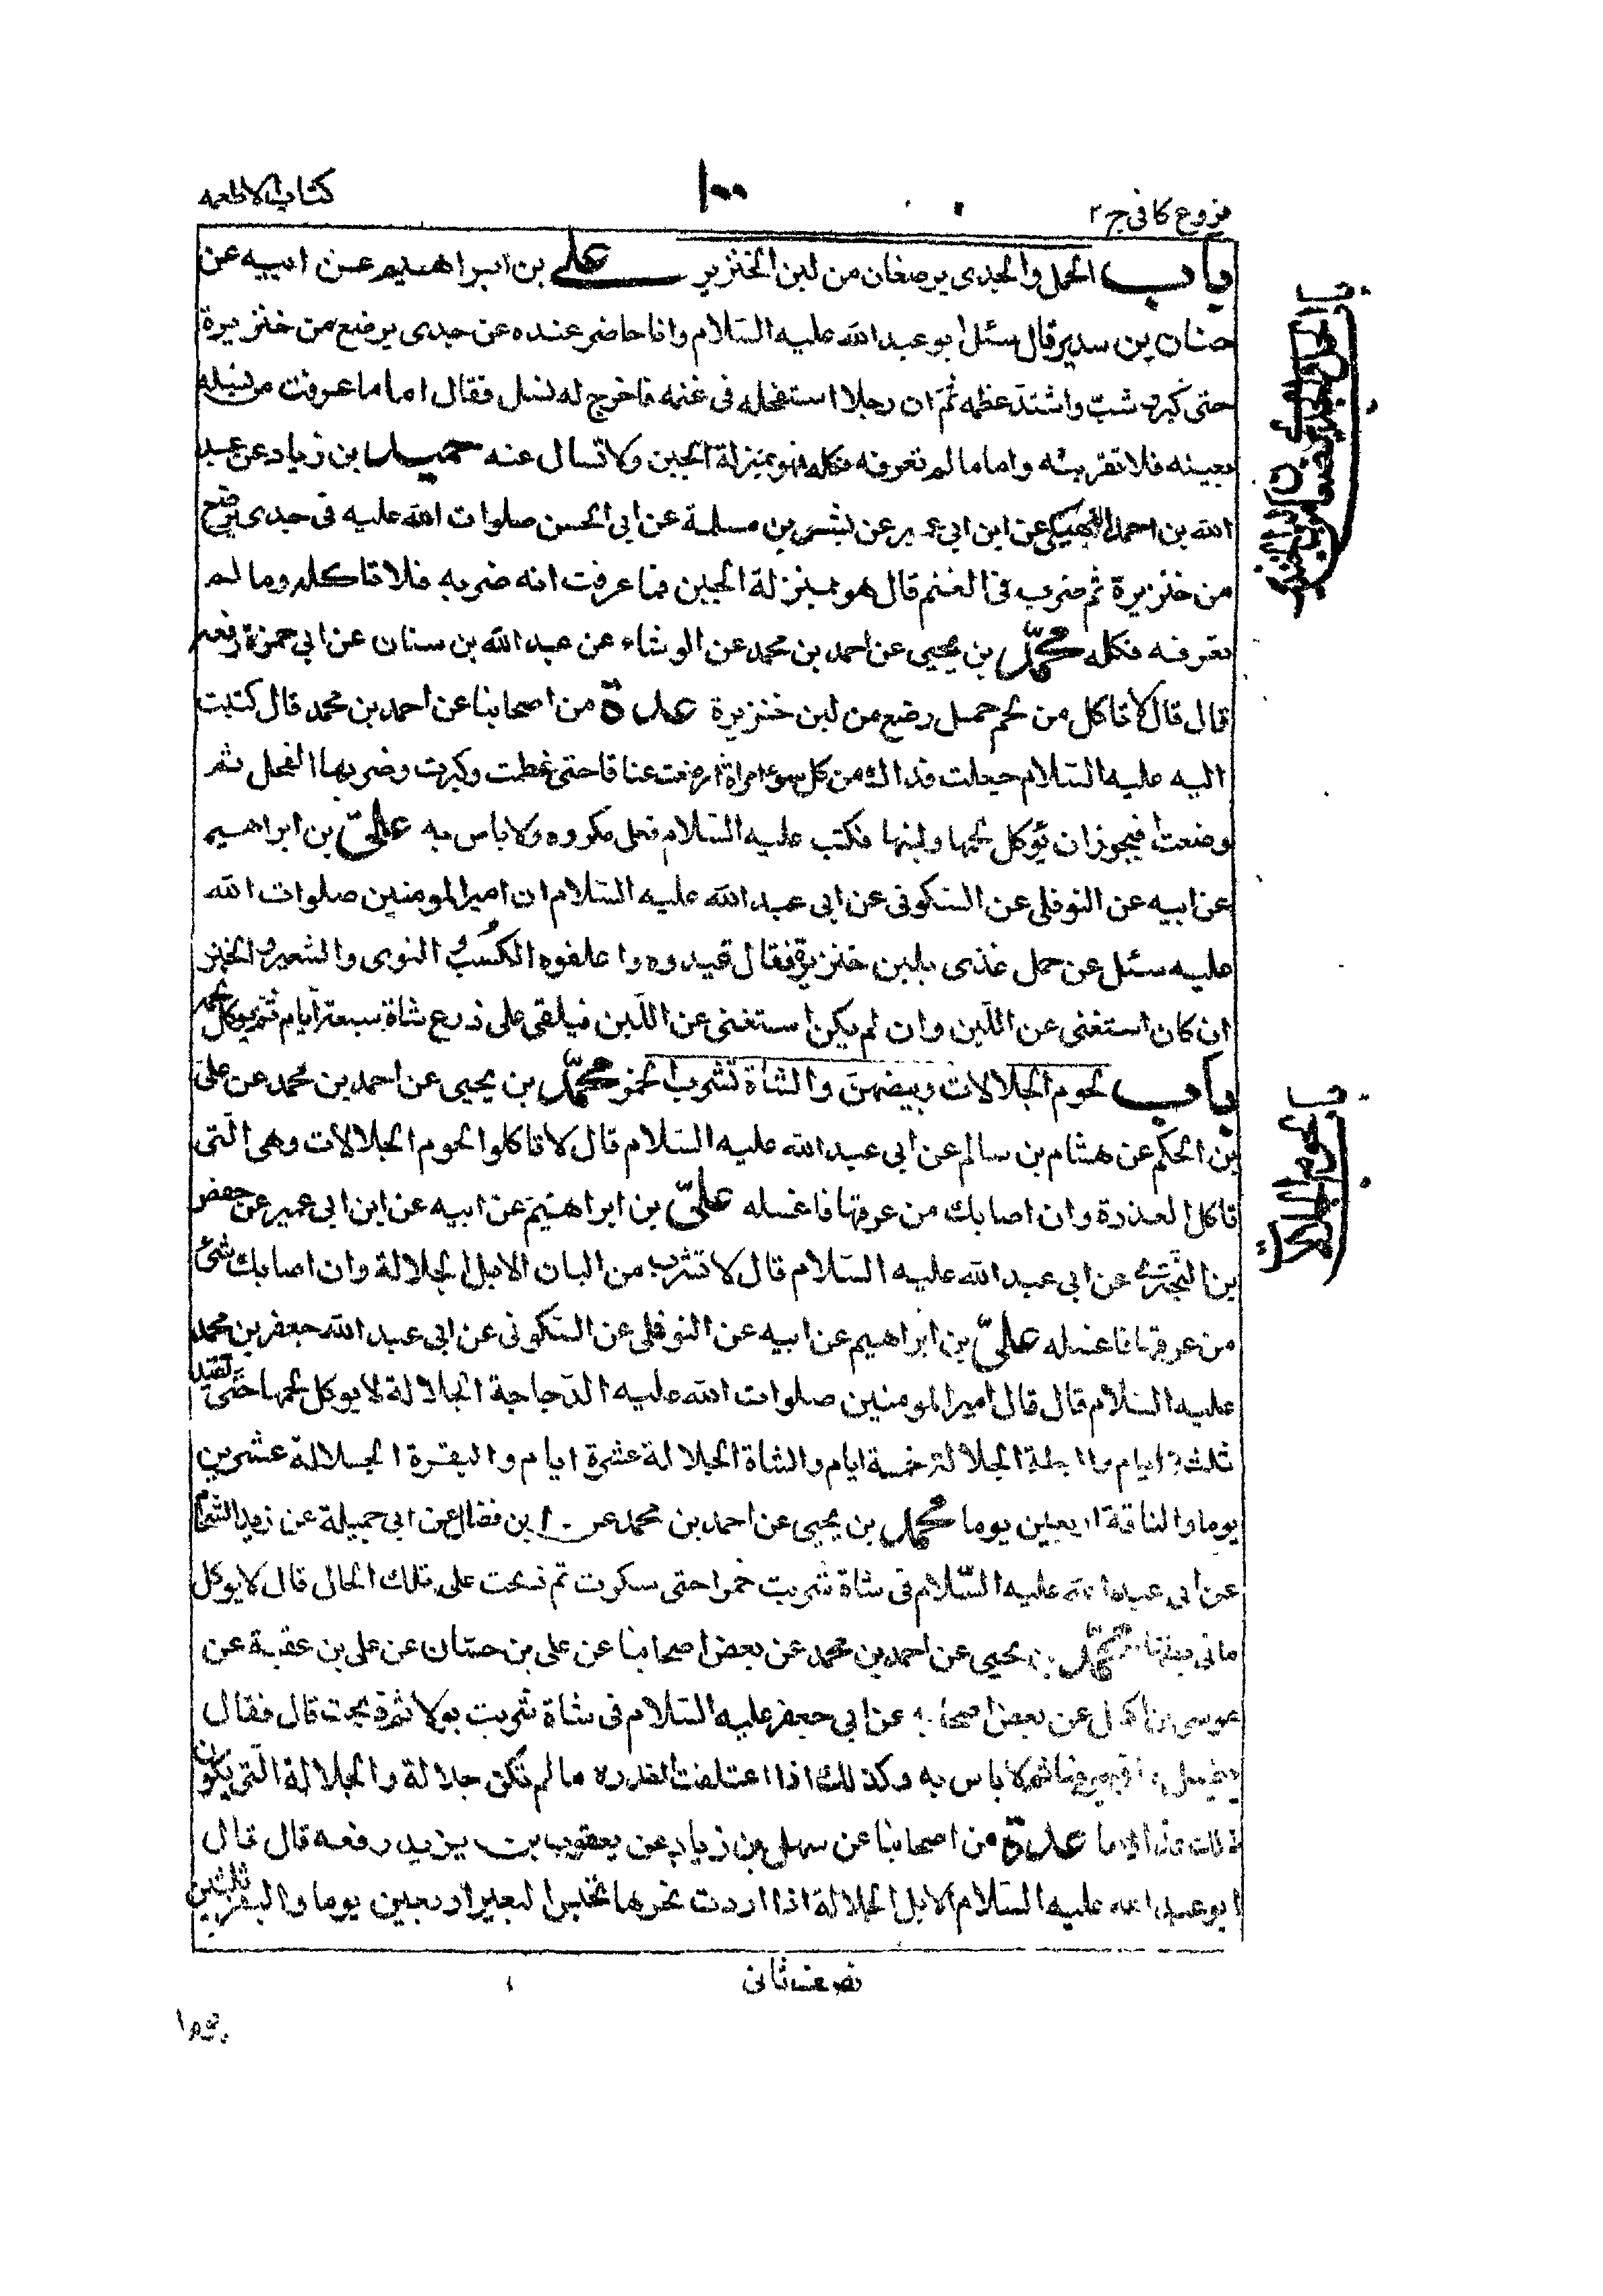 فروع كافى ج ٢
١٠٠
كتاب الاطعمه
باب الحمل والجدى يرضعان من لبن الخنزير علي بن ابراهيم عن ابيه عن
حنان بن سدير قال سئل ابو عبد الله عليه السّلام وانا حاضر عنده عن جدى يرضع من خنزيرة
حتى كبر وشبّ واشتدّ عظمه ثمّ ان رجلا استفحله فى غنمه فاخرج له نسل فقال اما ما عرفت من نسله
بعينه فلا تقربنّه واما ما لم تعرفه فكله فهو بمنزلة الجبن ولا تسال عنه حميد بن زياد عن عبد
الله بن احمد النهيكى عن ابن ابى عمير عن بشر بن مسلمة عن ابى الحسن صلوات الله عليه فى جدى يرضع
من خنزيرة ثم ضرب فى الغنم قال هو بمنزلة الجبن فما عرفت انه ضربه فلا تاكله وما لم
تعرفه فكله محمّد بن يحيى عن احمد بن محمد عن الوشاء عن عبد الله بن سنان عن ابى حمزة رفعه
قال قال لا تاكل من لحم حمل رضع من لبن خنزيرة عدة من اصحابنا عن احمد بن محمد قال كتبت
اليه عليه السّلام جعلت فداك من كل سوء امراة ارضعت عناقا حتى فطمت وكبرت وضربها الفحل ثم
وضعت افيجوز ان يؤكل لحمها ولبنها فكتب عليه السّلام فعل مكروه ولا باس به علىّ بن ابراهيم
عن ابيه عن النوفلى عن السّكونى عن ابى عبد الله عليه السّلام ان امير المومنين صلوات الله
عليه سئل عن حمل غذى بلبن خنزيرة فقال قيدوه واعلفوه الكُسْبَ والنوى والشعير والخبز
ان كان استغنى عن اللّبن وان لم يكن استغنى عن اللّبن فيلقى على ضرع شاة سبعة ايام ثم يوكل لحمه
باب لحوم الجلالات وبيضهنّ والشاة تشرب الخمر محمّد بن يحيى عن احمد بن محمد عن علىّ
بن الحكم عن هشام بن سالم عن ابى عبد الله عليه السّلام قال لا تاكلوا لحوم الجلالات وهى الّتى
تاكل العذرة وان اصابك من عرقها فاغسله علىّ بن ابراهيم عن ابيه عن ابن ابى عمير عن حفص
بن البخترى عن ابى عبد الله عليه السّلام قال لا تشرب من البان الابل الجلالة وان اصابك شئ
من عرقها فاغسله علىّ بن ابراهيم عن ابيه عن النوفلى عن السّكونى عن ابى عبد الله جعفر بن محمد
عليه السّلام قال قال امير المومنين صلوات الله عليه الدّجاجة الجلالة لا يوكل لحمها حتّى تقيد
ثلثة ايام والبطة الجلالة خمسة ايام والشاة الجلالة عشرة ايام والبقرة الجلالة عشرين
يوما والناقة اربعين يوما محمد بن يحيى عن احمد بن محمد عن ابن فضال عن ابى جميلة عن زيد الشحّام
عن ابى عبد الله عليه السّلام فى شاة شربت خمرا حتى سكرت ثم ذبحت على تلك الحال قال لا يوكل
ما فى بطنها محمّد بن يحيى عن احمد بن محمد عن بعض اصحابنا عن على بن حسّان عن على بن عقبة عن
موسى بن اكيل عن بعض اصحابه عن ابى جعفر عليه السّلام فى شاة شربت بولا ثم ذبحت قال فقال
يغسل ما فى جوفها ثم لا باس به وكذلك اذا اعتلفت العذره ما لم تكن جلالة والجلالة الّتى يكون
ذلك غذائها عدة من اصحابنا عن سهل بن زياد عن يعقوب بن يزيد رفعه قال قال
ابو عبد الله عليه السّلام الابل الجلالة اذا اردت نحرها تحبس البعير اربعين يوما والبقر ثلثين
نصف ثانى
يوما
باب الحمل والجدى يرضعان من لبن الخنزير
باب لحوم الجلالات